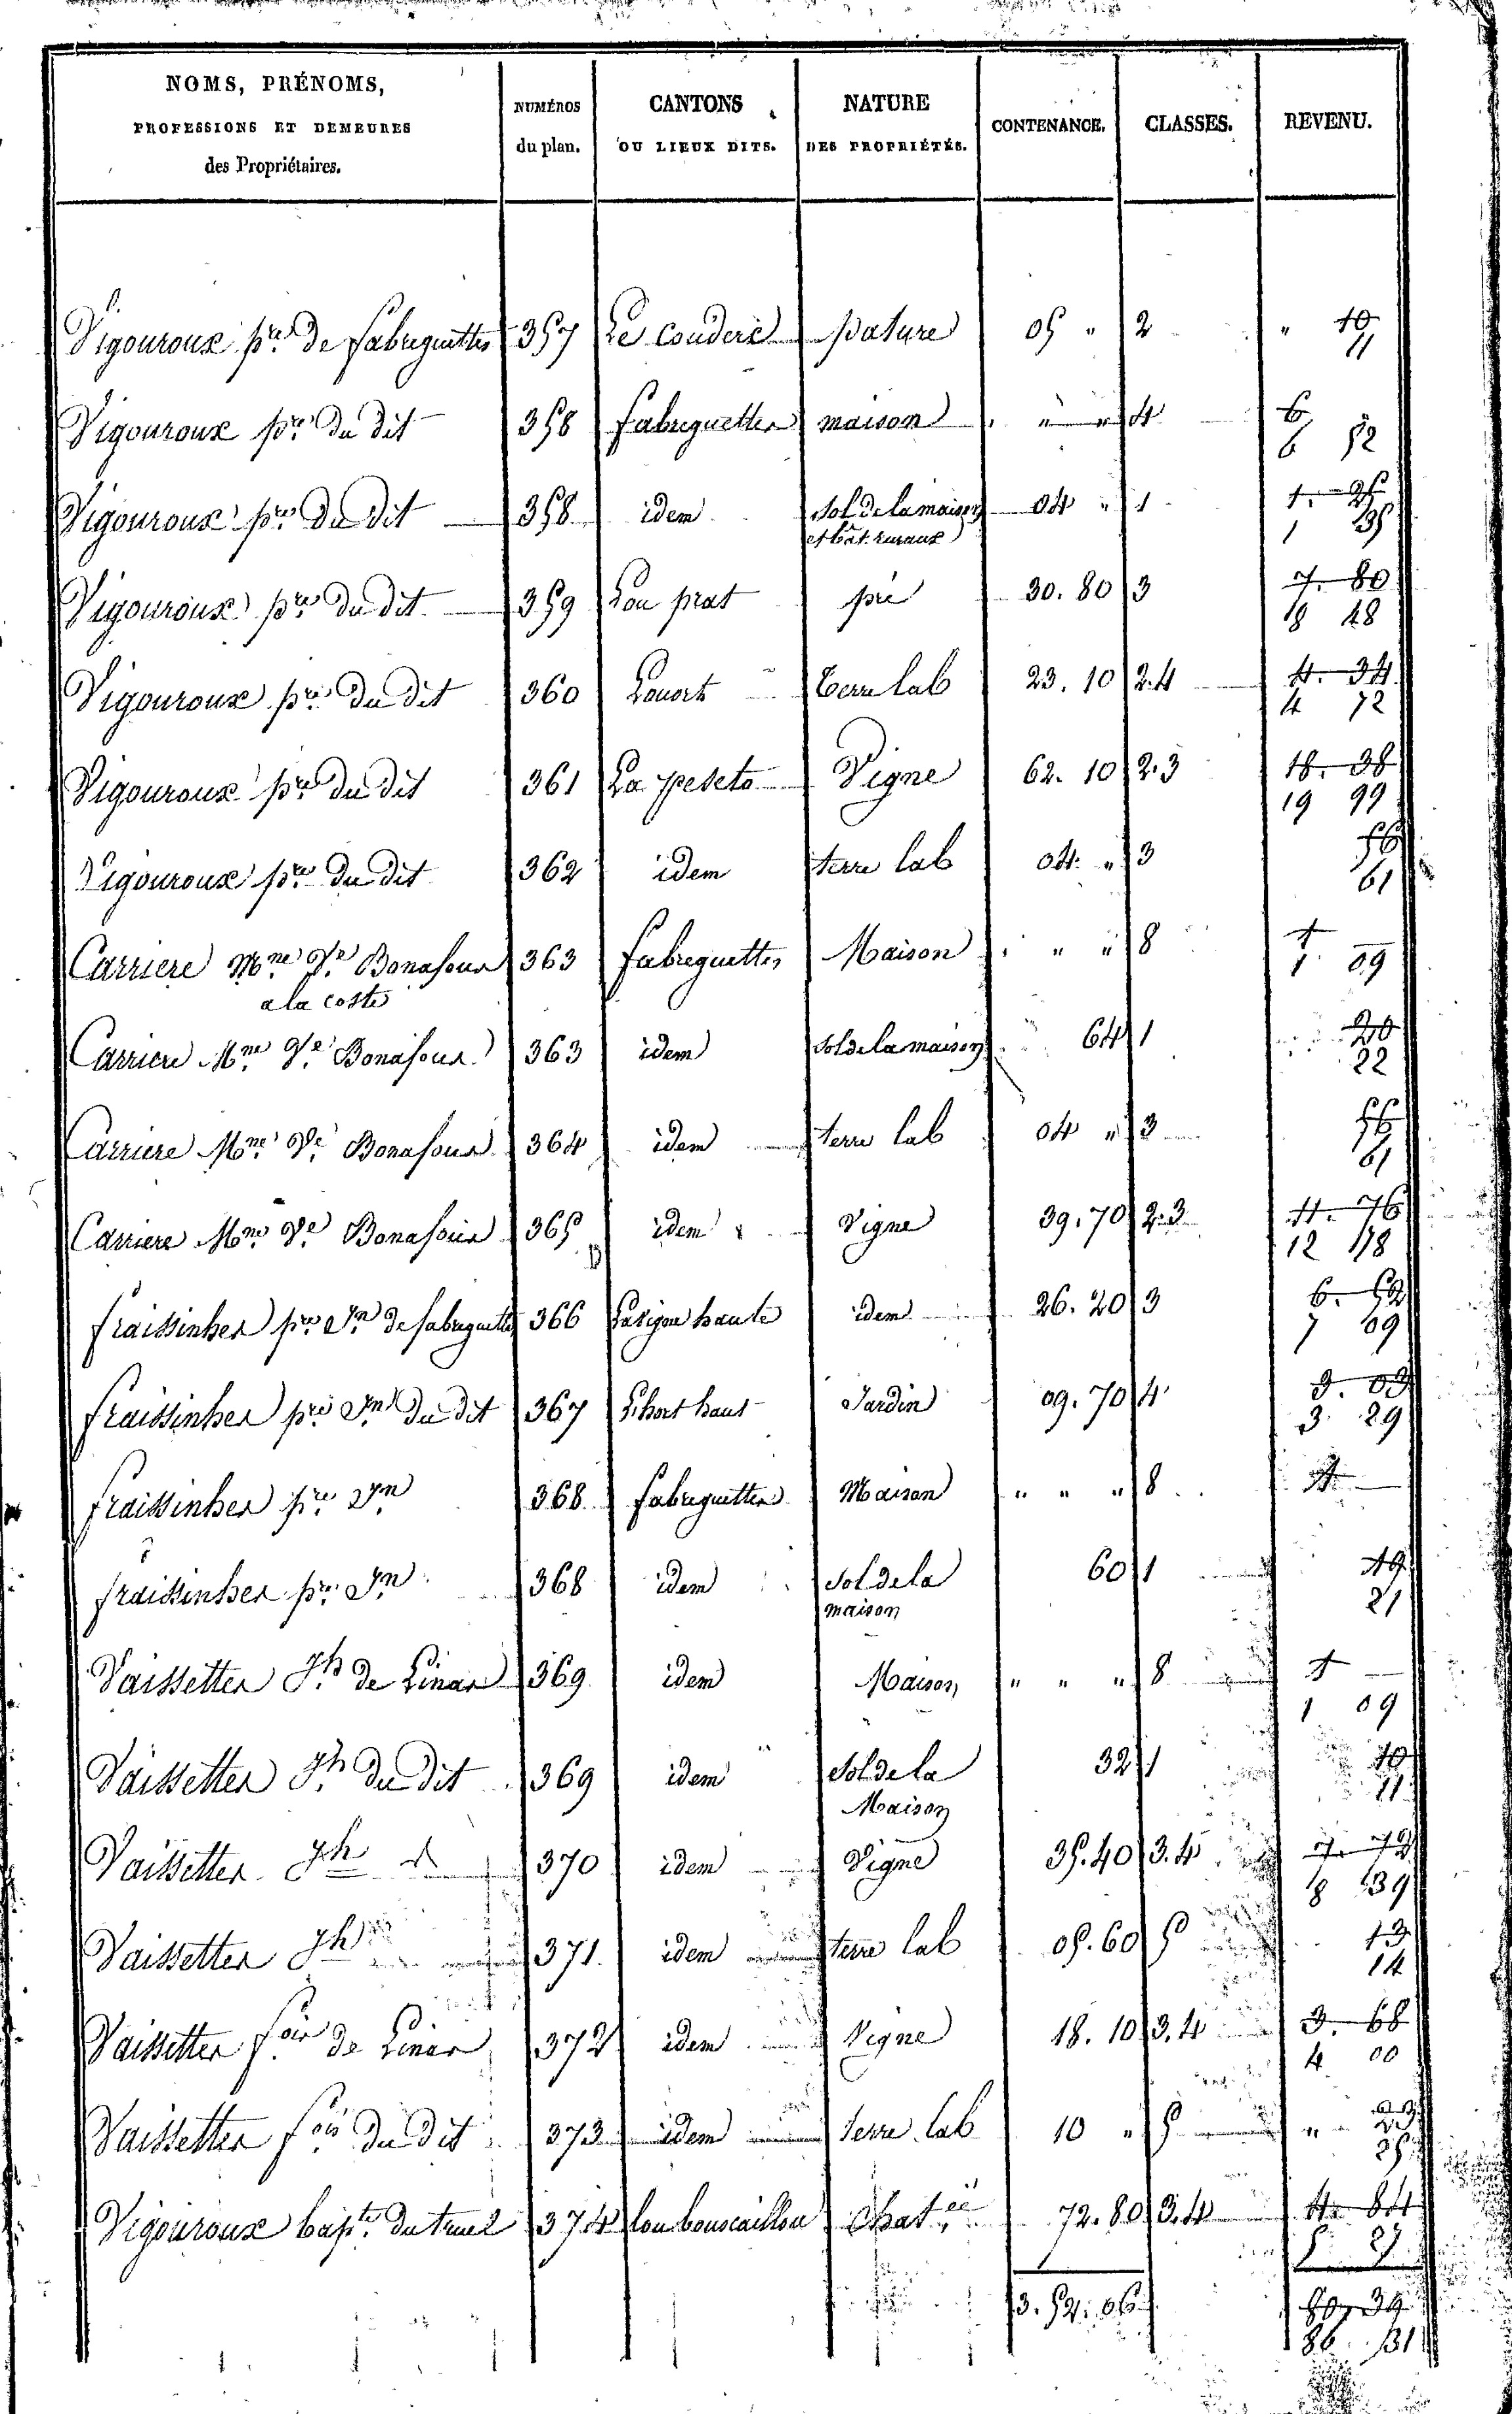 NOMS, PRÉNOMS, PROFESSIONS ET DEMEURES des Propriétaires. NUMÉROS du plan. CANTONS OU LIEUX DITS. NATURE DES PROPRIÉTÉS. CONTENANCE. CLASSES. REVENU.
Vigouroux pre de fabreguettes 357 Le couderc pature 05 " 2 " 10
11
Vigouroux pre du dit 358 fabreguettes maison " " " 4 6
6 52
Vigouroux pre du dit 358 idem sol de la maison 04 " 1 1. 25
et bât. ruraux 1 35
Vigouroux pre du dit 359 Lou prat pré 30. 80 3 7. 80
8 48
Vigouroux pre du dit 360 Louort Terre lab 23. 10 2.4 4. 34
4 72
Vigouroux pre du dit 361 La peseto Vigne 62. 10 2.3 18. 38
19 99
Vigouroux pre du dit 362 idem terre lab 04. " 3 56
61
Carriere Mne Ve Bonafous 363 fabreguettes Maison " " " 8 1
a la coste 1 09
Carriere Mne Ve Bonafous 363 idem sol de la maison 64 1 20
22
Carriere Mne Ve Bonafous 364 idem terre lab 04 " 3 56
61
Carriere Mne Ve Bonafous 365 idem Vigne 39. 70 2.3 11. 76
12 78
fraissinhes pre Jn de fabreguettes 366 haute idem 26. 20 3 6. 52
7 09
fraissinhes pre Jn du dit 367 L'hort haut Jardin 09. 70 4 3. 03
3. 29
fraissinhes pre Jn 368 fabreguettes Maison " " " 8 1
fraissinhes pre Jn 368 idem sol de la 60 1 19
maison 21
Vaissettes Jh de Linas 369 idem Maison " " " 8 1
1 09
Vaissettes Jh du dit 369 idem sol de la 32 1 10
Maison 11
Vaissettes Jh d 370 idem Vigne 35. 40 3.4 7. 72
8 39
Vaissettes Jh 371. idem terre lab 05. 60 5 13
14
Vaissettes fois de Linas 372 idem Vigne 18. 10 3.4 3. 68
4 00
Vaissettes fois du dit 373 idem terre lab 10 " 5 " 23
25
Vigouroux bapte du truel 374 lou bouscaillou Chatée 72. 80 3.4 4. 84
5 27
3. 52. 06 80, 39
86. 31